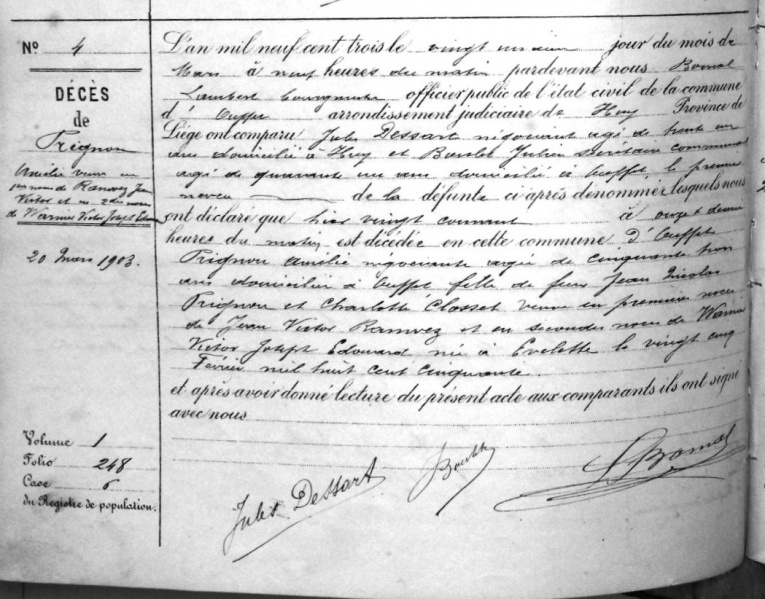 N° 4
DÉCÈS
de
Prignon
Amélie veuve en
1res noces de Ramvez Jean
Victor et en 2des noces
de Warnier Victor Joseph Edouard
20 Mars 1903.
Volume 1
Folio 248
Case 6
du Registre de population.
L'an mil neuf cent trois le vingt un jour du mois de
Mars à neuf heures du matin pardevant nous Bomal
Lambert bourgmestre officier public de l'état civil de la commune
d' Ouffet arrondissement judiciaire de Huy Province de
Liége ont comparu Jules Dessart négociant agé de trente un
ans domicilié à Huy et Julien Secrétaire communal
agé de quarante un ans domicilié à Ouffet, le premier
neveu de la défunte ci après dénommée lesquels nous
ont déclaré que hier vingt courant à onze et demie
heures du matin est décédée en cette commune d' Ouffet
Prignon Amélie négociante agée de cinquante trois
ans domiciliée à Ouffet fille de feux Jean Nicolas
Prignon et Charlotte Closset veuve en premières noces
de Jean Victor Ramvez et en secondes noces de
Victor Joseph Edouard née à Evelette le vingt cinq
Février mil huit cent cinquante.
et après avoir donné lecture du présent acte aux comparants ils ont signé
avec nous
Jules Dessart
Bomal